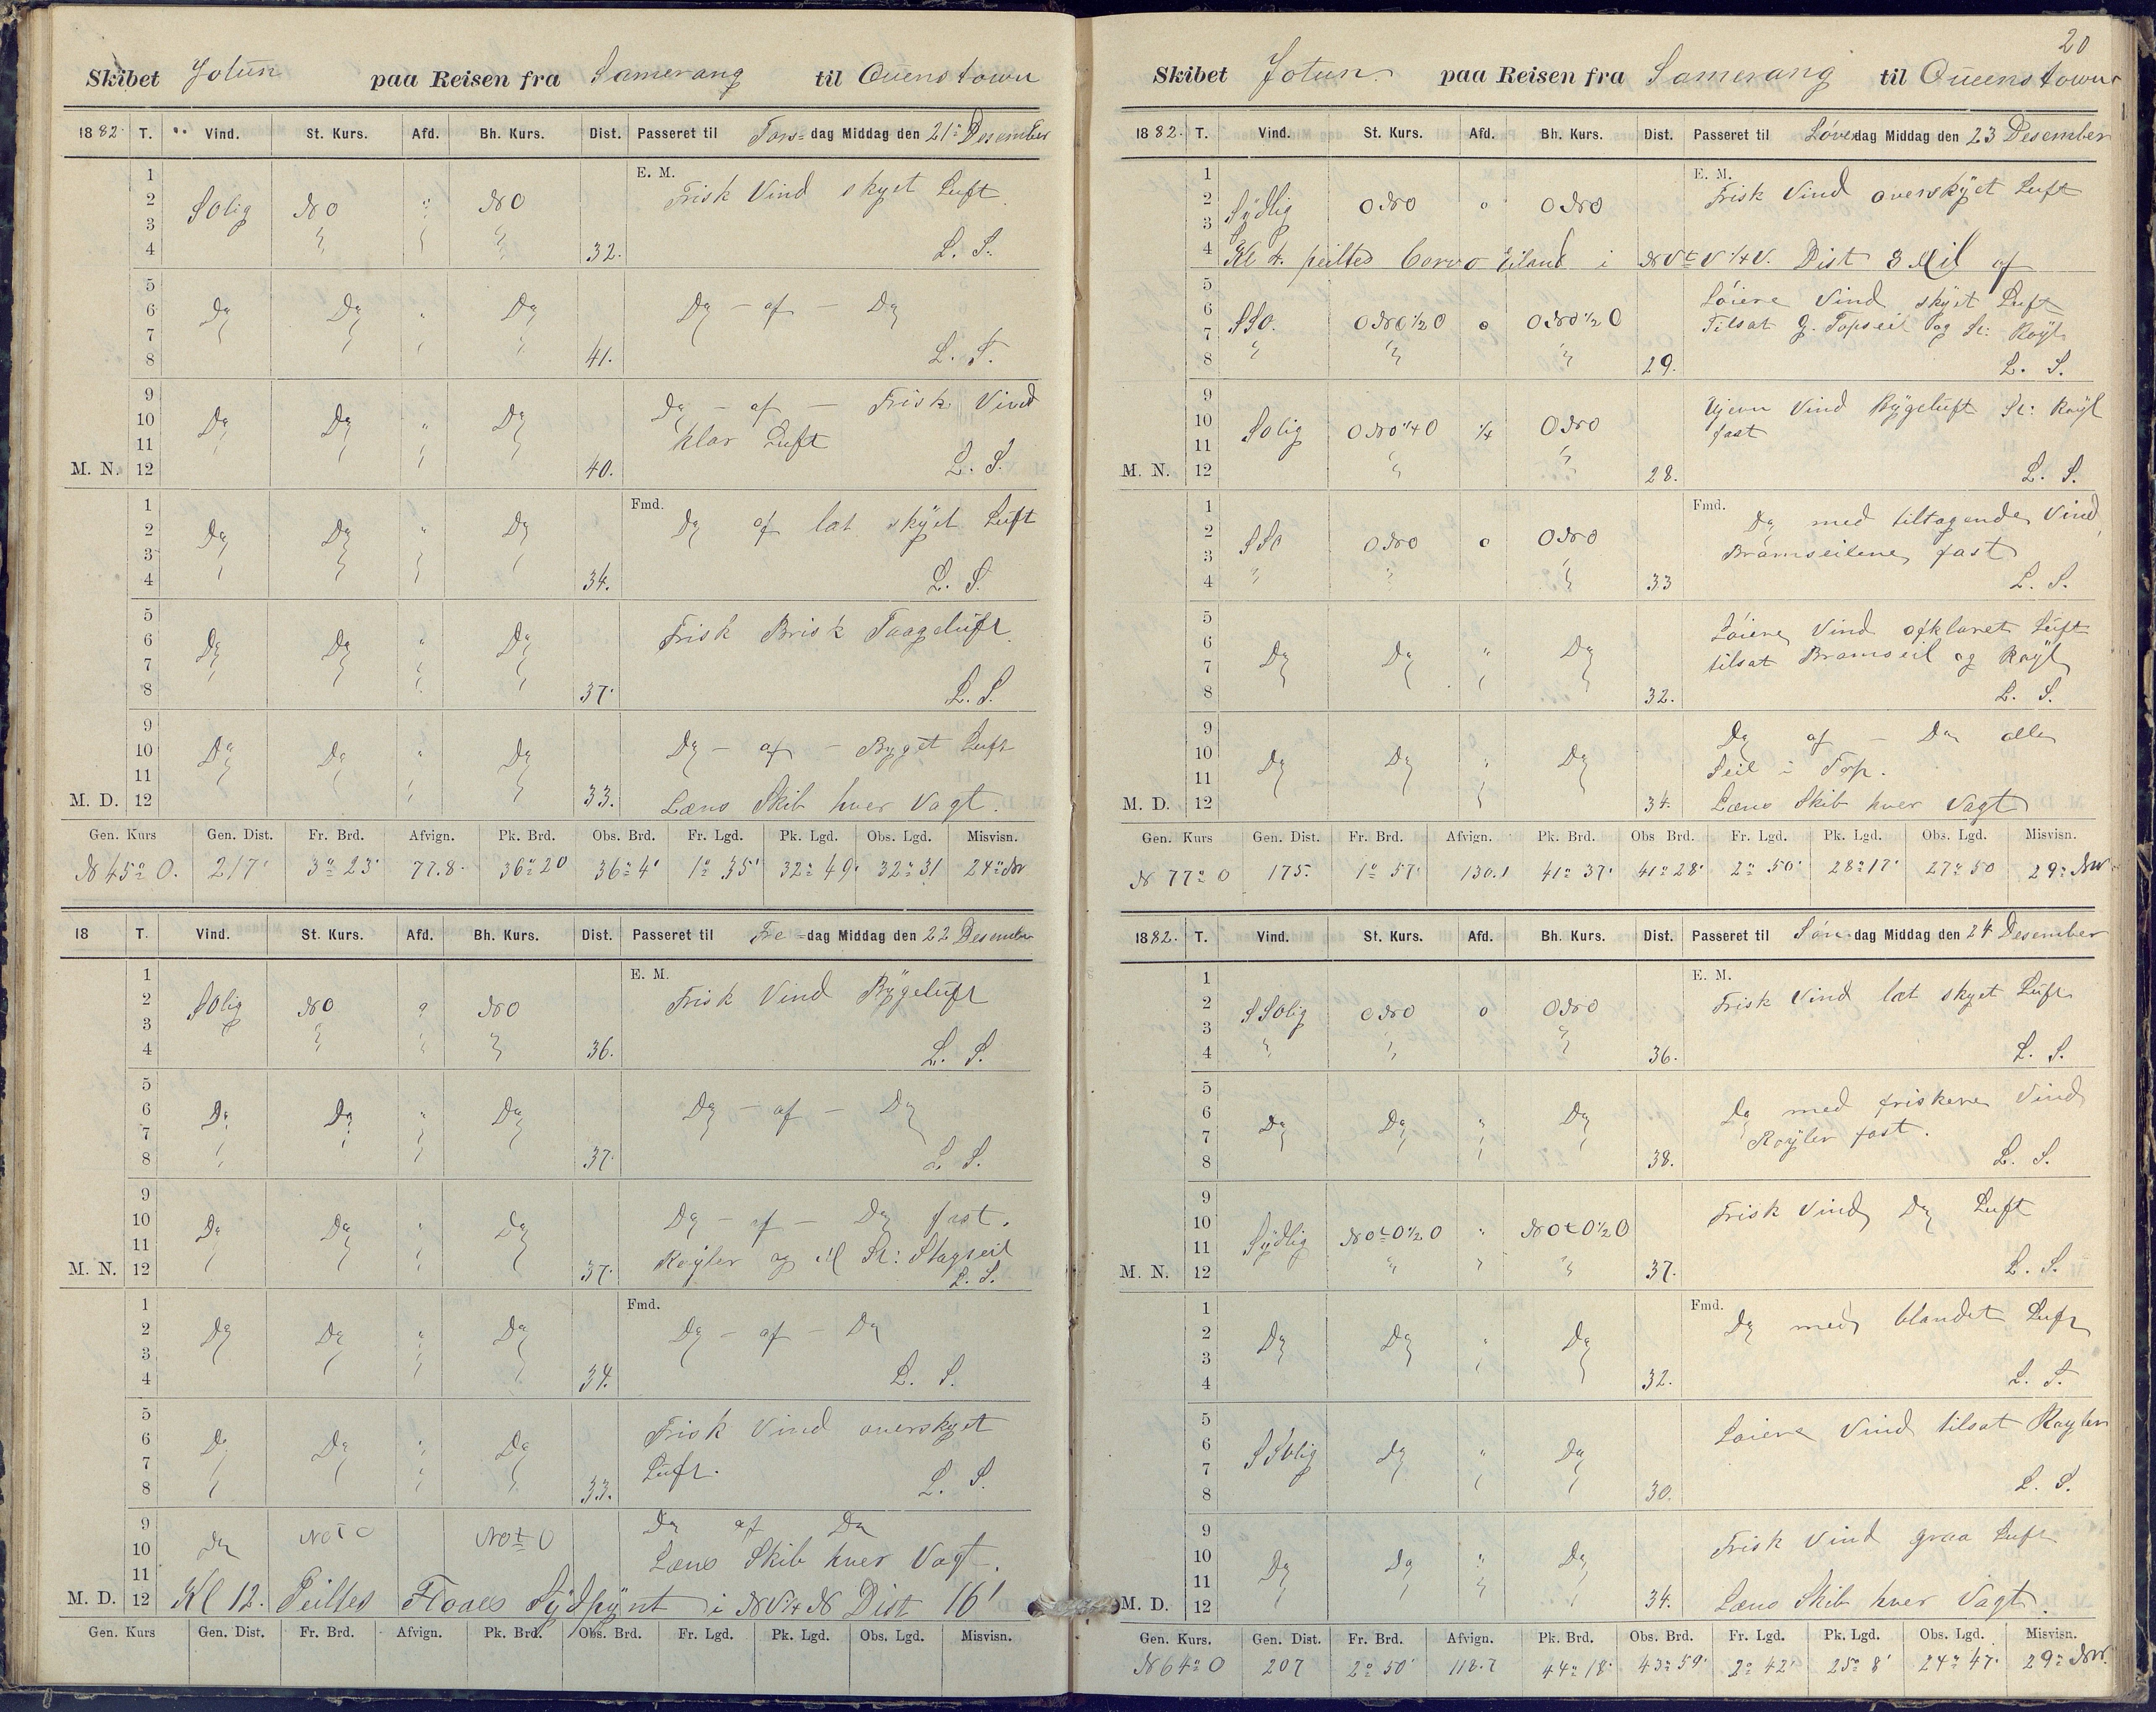 Skibet Jotun paa Reisen fra Samerang til Queenstown
1882 T. Vind. St. Kurs. Afd. Bh. Kurs. Dist. Passeret til Tors-dag Middag den 21 Desember
E. M.
1 2 3 4 SOlig NO " NO 32. Frisk Vind skyet Luft
L. S.
5 6 7 8 Do Do " Do 41. Do - af - Do
L. S.
9 10 11 M. N. 12 Do Do " Do 40. Do - af - Frisk Vind
klar Luft
L. S.
Fmd.
1 2 3 4 Do Do " Do 34. Do af let skyet Luft
L. S.
5 6 7 8 Do Do " Do 37. Frisk Brisk Taageluft
L. S.
9 10 11 M. D. 12 Do Do " Do 33. Do - af - Byget Luft
Læns Skib hver Vagt.
Gen. Kurs Gen. Dist. Fr. Brd. Afvign. Pk. Brd. Obs. Brd. Fr. Lgd. Pk. Lgd. Obs. Lgd. Misvisn.
N 45° O. 217' 3° 23' 77.8. 36° 20 36° 4' 1° 35' 32° 49' 32° 31 24° NW
18 T. Vind. St. Kurs. Afd. Bh. Kurs. Dist. Passeret til Fre-dag Middag den 22 Desember
E. M.
1 2 3 4 SOlig NO " NO 36. Frisk Vind Bygeluft
L. S.
5 6 7 8 Do Do " Do 37. Do - af - Do
L. S.
9 10 11 M. N. 12 Do Do " Do 37. Do - af - Do fast.
Røyler og St: Stagseil
L. S.
Fmd.
1 2 3 4 Do Do " Do 34. Do - af - Do
L. S.
5 6 7 8 Do Do " Do 33. Frisk Vind overskyet
Luft.
L. S.
9 10 11 M. D. 12 Do NOtO NOtO Do af Do
Læns Skib hver Vagt.
Kl 12. Peiltes Sydpynt i NV¼N Dist 16'
Gen. Kurs Gen. Dist. Fr. Brd. Afvign. Pk. Brd. Obs. Brd. Fr. Lgd. Pk. Lgd. Obs. Lgd. Misvisn.
20
Skibet Jotun paa Reisen fra Samerang til Queenstown
1882. T. Vind. St. Kurs. Afd. Bh. Kurs. Dist. Passeret til Løverdag Middag den 23 Desember
E. M.
1 2 3 4 Sydlig ONO o ONO Frisk Vind overskyet Luft
Kl 4. peiltes Corvo Eiland i NVtV¼V. Dist 8 Mil af
5 6 7 8 SSO. ONO½O o ONO½O 29. Løiere Vind skyet Luft
Tilsat G. Topseil og St: Røyl
L. S.
9 10 11 M. N. 12 SOlig ONO¼O ¼ ONO 28. Ujevn Vind Bygeluft St: Røyl
fast
L. S.
Fmd.
1 2 3 4 SSO ONO o ONO 33 Do med tiltagende Vind
Bramseilene fast
L. S.
5 6 7 8 Do Do " Do 32. Løiere Vind afklaret Luft
tilsat Bramseil og Røyl
L. S.
9 10 11 M. D. 12 Do Do " Do 34. Do af - Do alle
Seil i Top.
Læns Skib hver Vagt
Gen. Kurs Gen. Dist. Fr. Brd. Afvign. Pk. Brd. Obs Brd. Fr. Lgd. Pk. Lgd. Obs. Lgd. Misvisn.
N 77° O 175. 1° 57' 130.1 41° 37' 41° 28' 2° 50' 28° 17' 27° 50 29° NW
1882. T. Vind. St. Kurs. Afd. Bh. Kurs. Dist. Passeret til Søn-dag Middag den 24 Desember
E. M.
1 2 3 4 SSOlig ONO o ONO 36. Frisk Vind let skyet Luft
L. S.
5 6 7 8 Do Do " Do 38. Do med friskere Vind
Røyler fast.
L. S.
9 10 11 M. N. 12 Sydlig NOtO½O " NOtO½O 37. Frisk Vind Do Luft
L. S.
Fmd.
1 2 3 4 Do Do " Do 32. Do med blandet Luft
L. S.
5 6 7 8 SSOlig Do " Do 30. Løiere Vind tilsat Røyler
L. S.
9 10 11 M. D. 12 Do Do " Do 34. Frisk Vind graa Luft
Læns Skib hver Vagt.
Gen. Kurs. Gen. Dist. Fr. Brd. Afvign. Pk. Brd. Obs. Brd. Fr. Lgd. Pk. Lgd. Obs. Lgd. Misvisn.
N 64° O 207 2° 50' 118.7 44° 18' 43° 59' 2° 42' 25° 8' 24° 47' 29° NW.